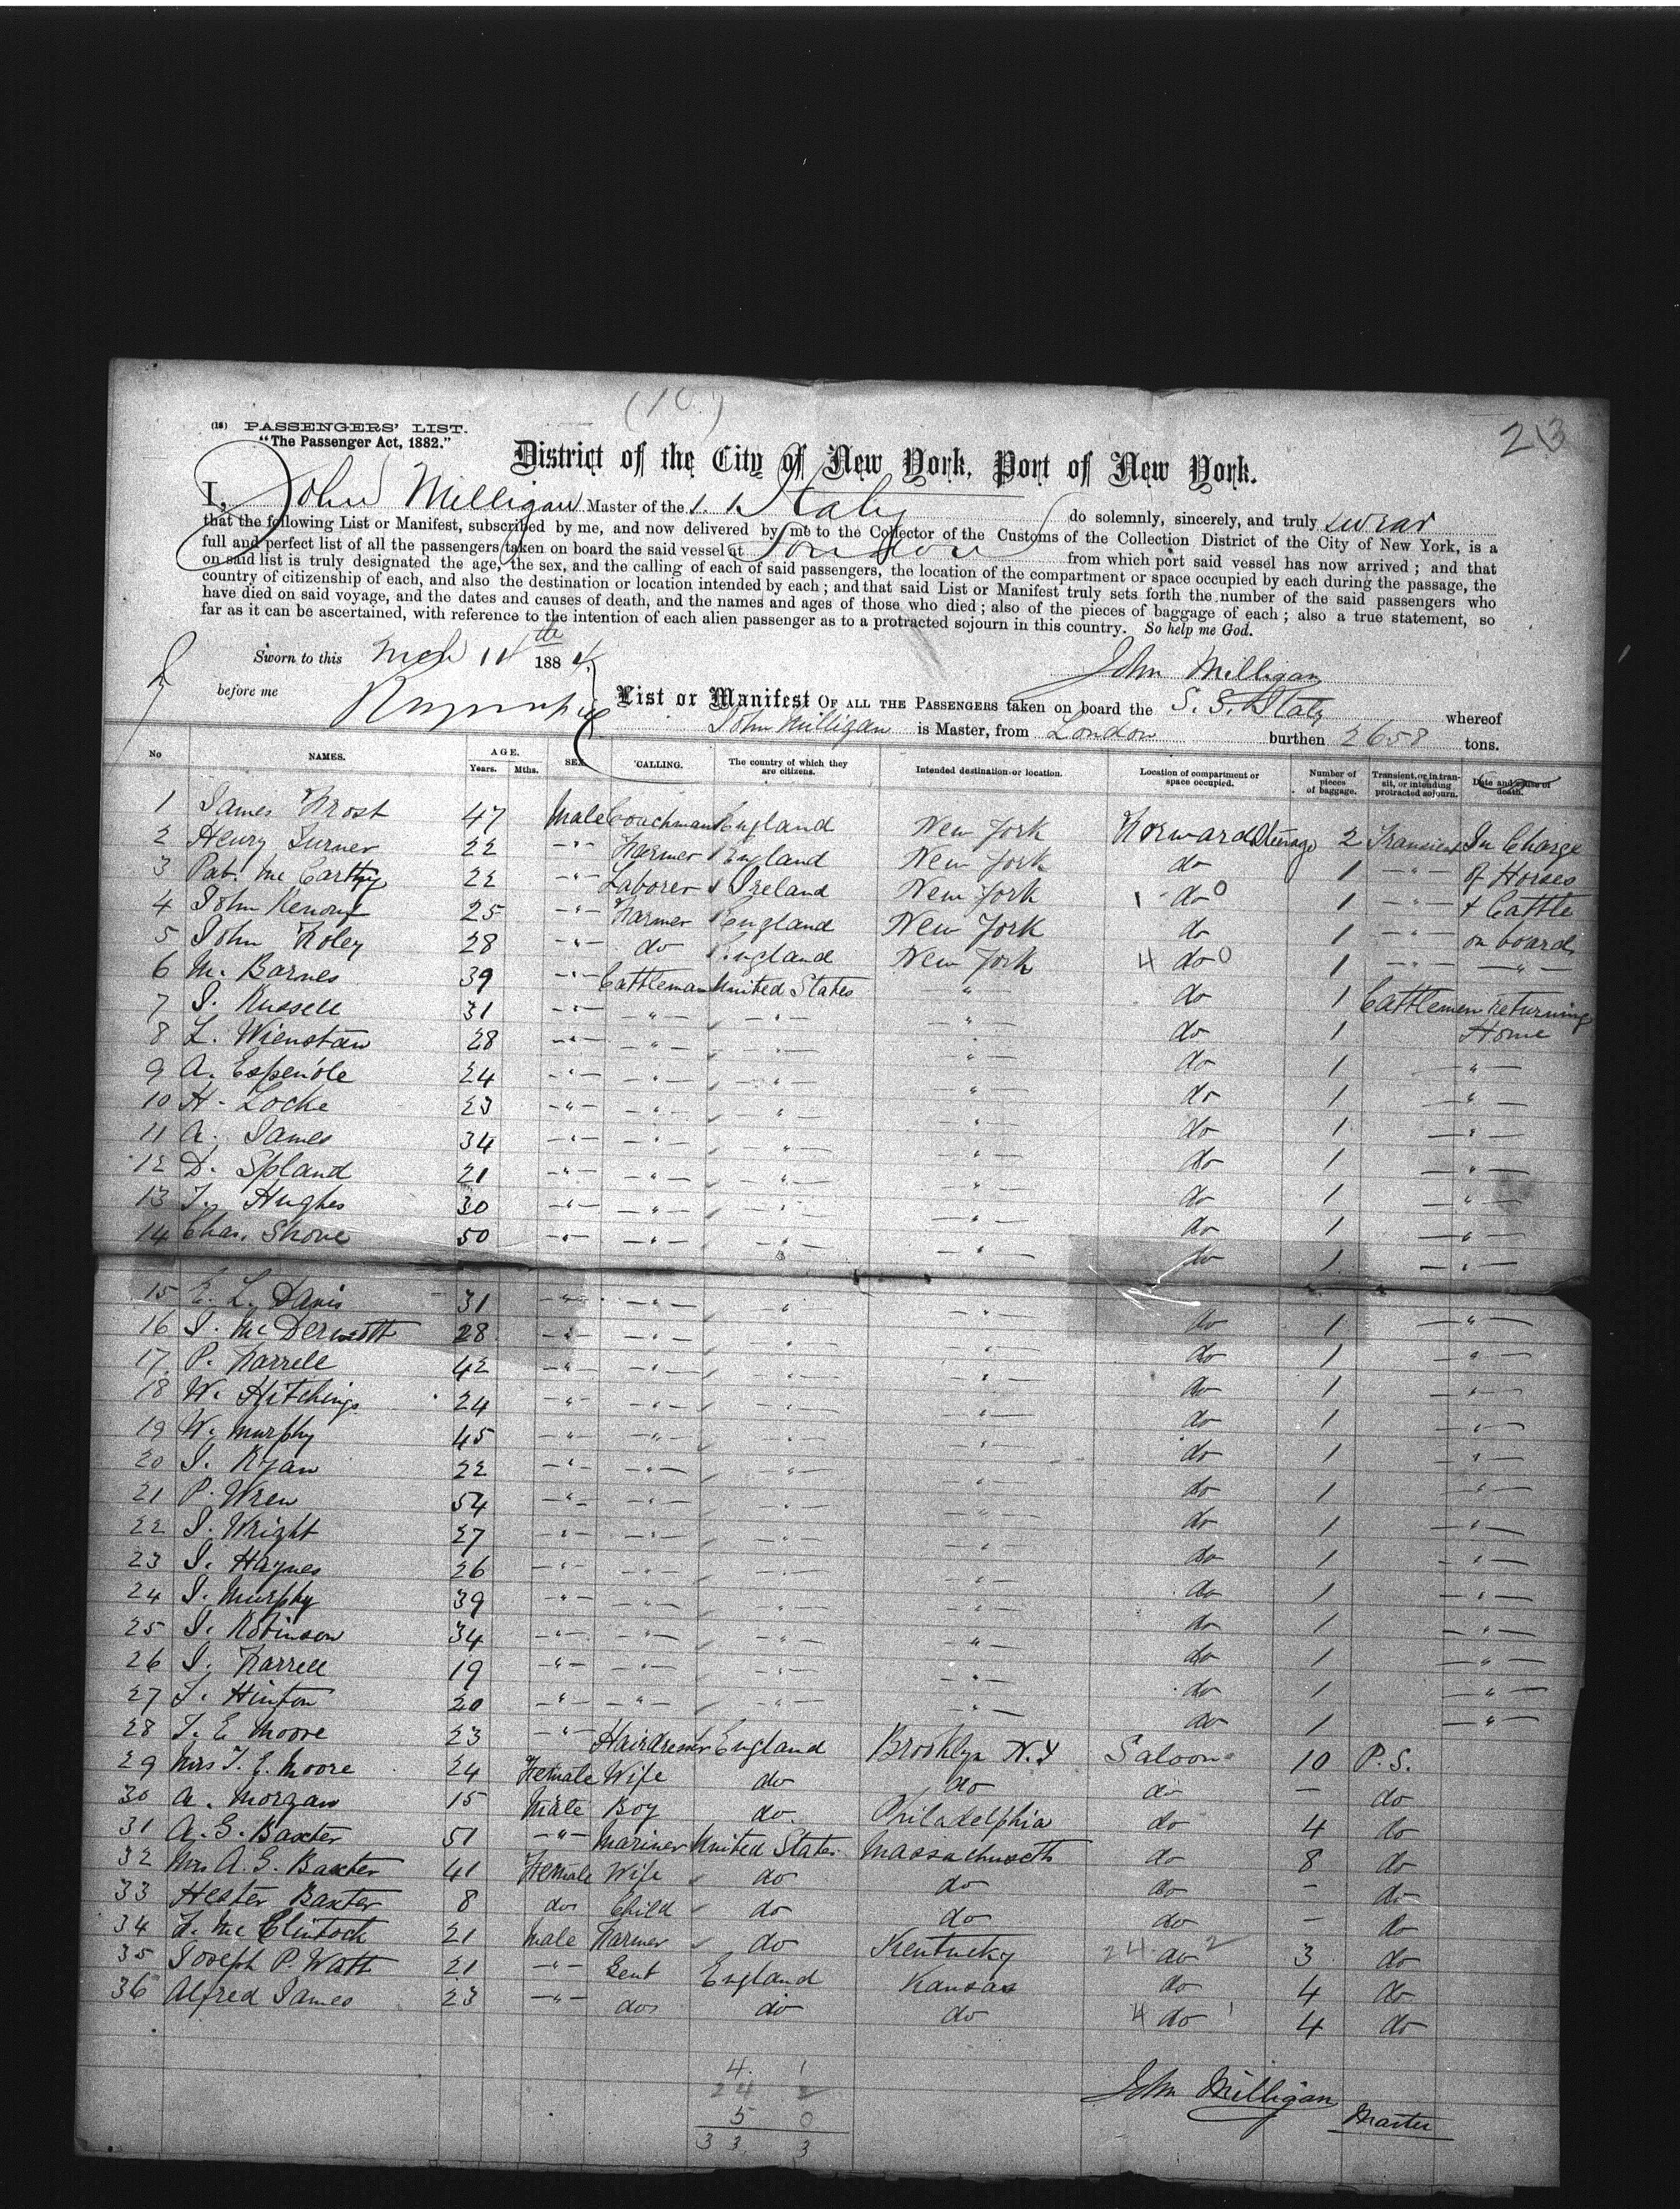 (10)
213
(18) PASSENGERS' LIST.
"The Passenger Act, 1882."
District of the City of New York, Port of New York.
I, John Milligan Master of the S. S. Italy do solemnly, sincerely, and truly swear
that the following List or Manifest, subscribed by me, and now delivered by me to the Collector of the Customs of the Collection District of the City of New York, is a
full and perfect list of all the passengers taken on board the said vessel at London from which port said vessel has now arrived; and that
on said list is truly designated the age, the sex, and the calling of each of said passengers, the location of the compartment or space occupied by each during the passage, the
country of citizenship of each, and also the destination or location intended by each; and that said List or Manifest truly sets forth the number of the said passengers who
have died on said voyage, and the dates and causes of death, and the names and ages of those who died; also of the pieces of baggage of each; also a true statement, so
far as it can be ascertained, with reference to the intention of each alien passenger as to a protracted sojourn in this country. So help me God.
Sworn to this Mch 14th 1884 John Milligan
before me
List or Manifest OF ALL THE PASSENGERS taken on board the S. S. Italy whereof
John Milligan is Master, from London burthen 2658 tons.
No NAMES. AGE. Years. Mths. SEX. CALLING. The country of which they are citizens. Intended destination or location. Location of compartment or space occupied. Number of pieces of baggage. Transient, or in transit, or intending protracted sojourn. Date and cause of death.
1 James Frost 47 Male Coachman England New York Forward Steerage 2 Transient In Charge
2 Henry Turner 22 -"- Farmer England New York do 1 -"- of Horses
3 Pat. McCarthy 22 -"- Laborer Ireland New York 1 do 0 1 -"- & Cattle
4 John 25 -"- Farmer England New York do 1 -"- on board
5 John Foley 28 -"- do England New York 4 do 0 1 -"- -"-
6 M. Barnes 39 -"- Cattleman United States -"- do 1 Cattlemen returning
7 J. Russell 31 -"- -"- -"- -"- do 1 Home
8 L. 28 -"- -"- -"- -"- do 1 -"-
9 A. 24 -"- -"- -"- -"- do 1 -"-
10 H. Locke 23 -"- -"- -"- -"- do 1 -"-
11 A. James 34 -"- -"- -"- -"- do 1 -"-
12 D. Spland 21 -"- -"- -"- -"- do 1 -"-
13 T. Hughes 30 -"- -"- -"- -"- do 1 -"-
14 Chas. Shove 50 -"- -"- -"- -"- do 1 -"-
15 E. L. Davis 31 -"- -"- -"- -"- do 1 -"-
16 J. McDermott 28 -"- -"- -"- -"- do 1 -"-
17 P. Farrell 42 -"- -"- -"- -"- do 1 -"-
18 W. Hitchings 24 -"- -"- -"- -"- do 1 -"-
19 W. Murphy 45 -"- -"- -"- -"- do 1 -"-
20 J. Ryan 22 -"- -"- -"- -"- do 1 -"-
21 P. Wren 54 -"- -"- -"- -"- do 1 -"-
22 J. Wright 27 -"- -"- -"- -"- do 1 -"-
23 J. Haynes 26 -"- -"- -"- -"- do 1 -"-
24 J. Murphy 39 -"- -"- -"- -"- do 1 -"-
25 J. Robinson 34 -"- -"- -"- -"- do 1 -"-
26 J. Farrell 19 -"- -"- -"- -"- do 1 -"-
27 T. Hinton 20 -"- -"- -"- -"- do 1 -"-
28 T. E. Moore 23 -"- Hairdresser England Brooklyn N.Y Saloon 10 P.S.
29 Mrs T. E. Moore 24 Female Wife do do do - do
30 A. Morgan 15 Male Boy do. Philadelphia do 4 do
31 A. G. Baxter 51 -"- Mariner United States Massachusetts do 8 do
32 Mrs A. G. Baxter 41 Female Wife do do do - do
33 Hester Baxter 8 do Child do do do - do
34 F. McClintock 21 Male Farmer do Kentucky 24 do 2 3 do
35 Joseph P. Watt 21 -"- Gent England Kansas do 4 do
36 Alfred James 23 -"- do do do 4 do 1 4 do
4. 1
24 2
5 0
33 3
John Milligan
Master